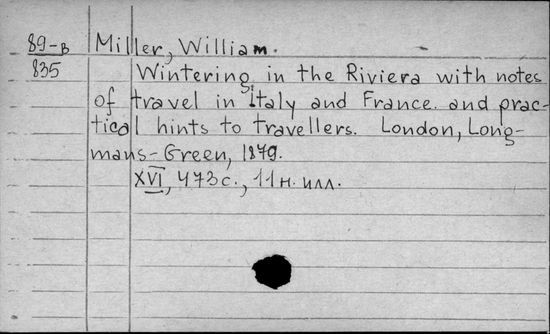 89-в Miller, William.
835 Wintering in the Riviera with notes
of travel in Italy and France. and prac-
tical hints to travellers. London, Long-
mans-Green, 1879.
XVI, 473с., 11 н. илл.